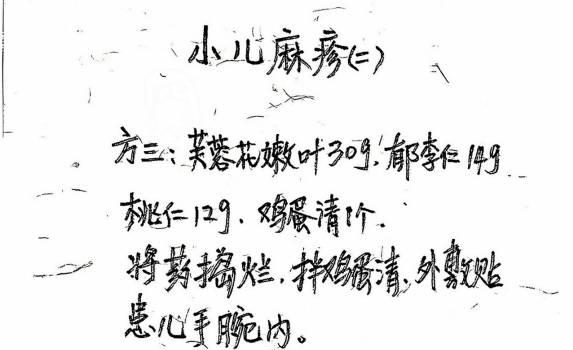 小儿麻疹(二)
方三：芙蓉花嫩叶30g、郁李仁14g
桃仁12g．鸡蛋清1个．
将药捣烂，拌鸡蛋清，外敷贴
患儿手腕内。